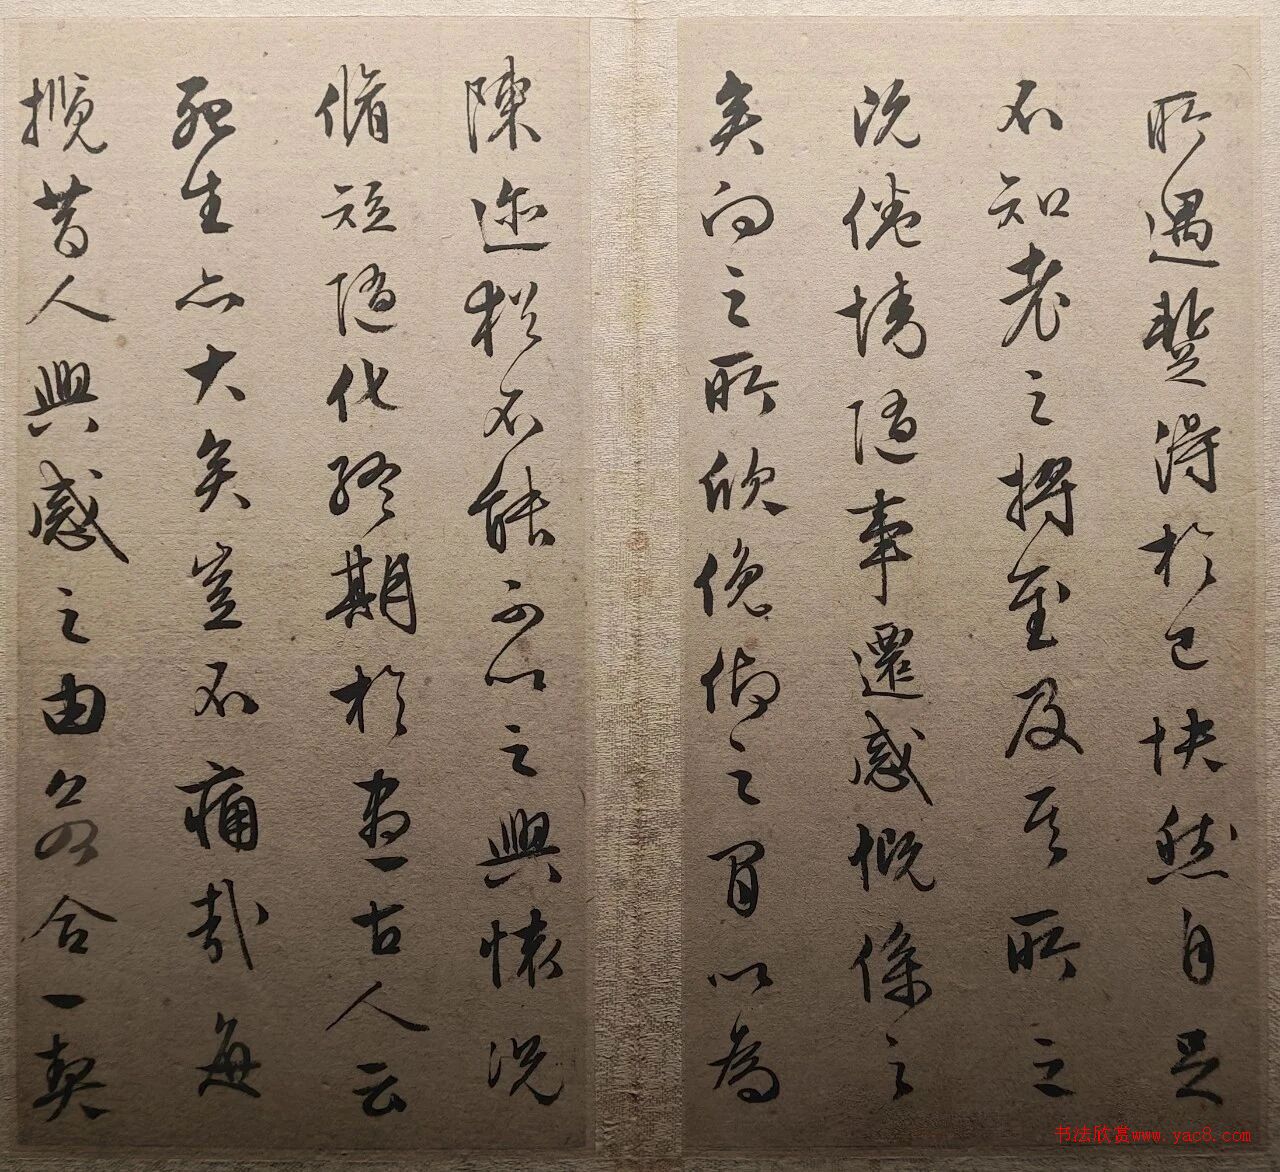 所遇蹔得於己快然自足
不知老之將至及其所之
既倦情隨事遷感慨係之
矣向之所欣俛仰之間以為
陳迹猶不能不以之興懷況
脩短隨化終期於盡古人云
死生亦大矣豈不痛哉每
攬昔人興感之由若合一契
书法欣赏www.yac8.com